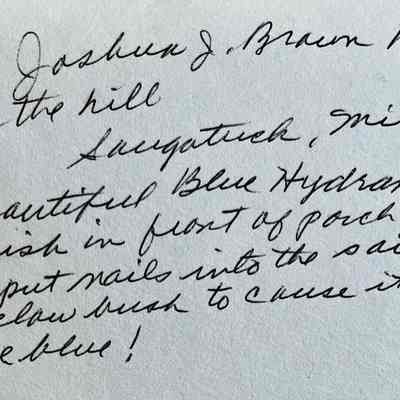 Joshua J. Brown
the hill
Saugatuck, Mi
eautiful Blue Hydran
ish in front of porch
put nails into the soi
elow bush to cause it
e blue!